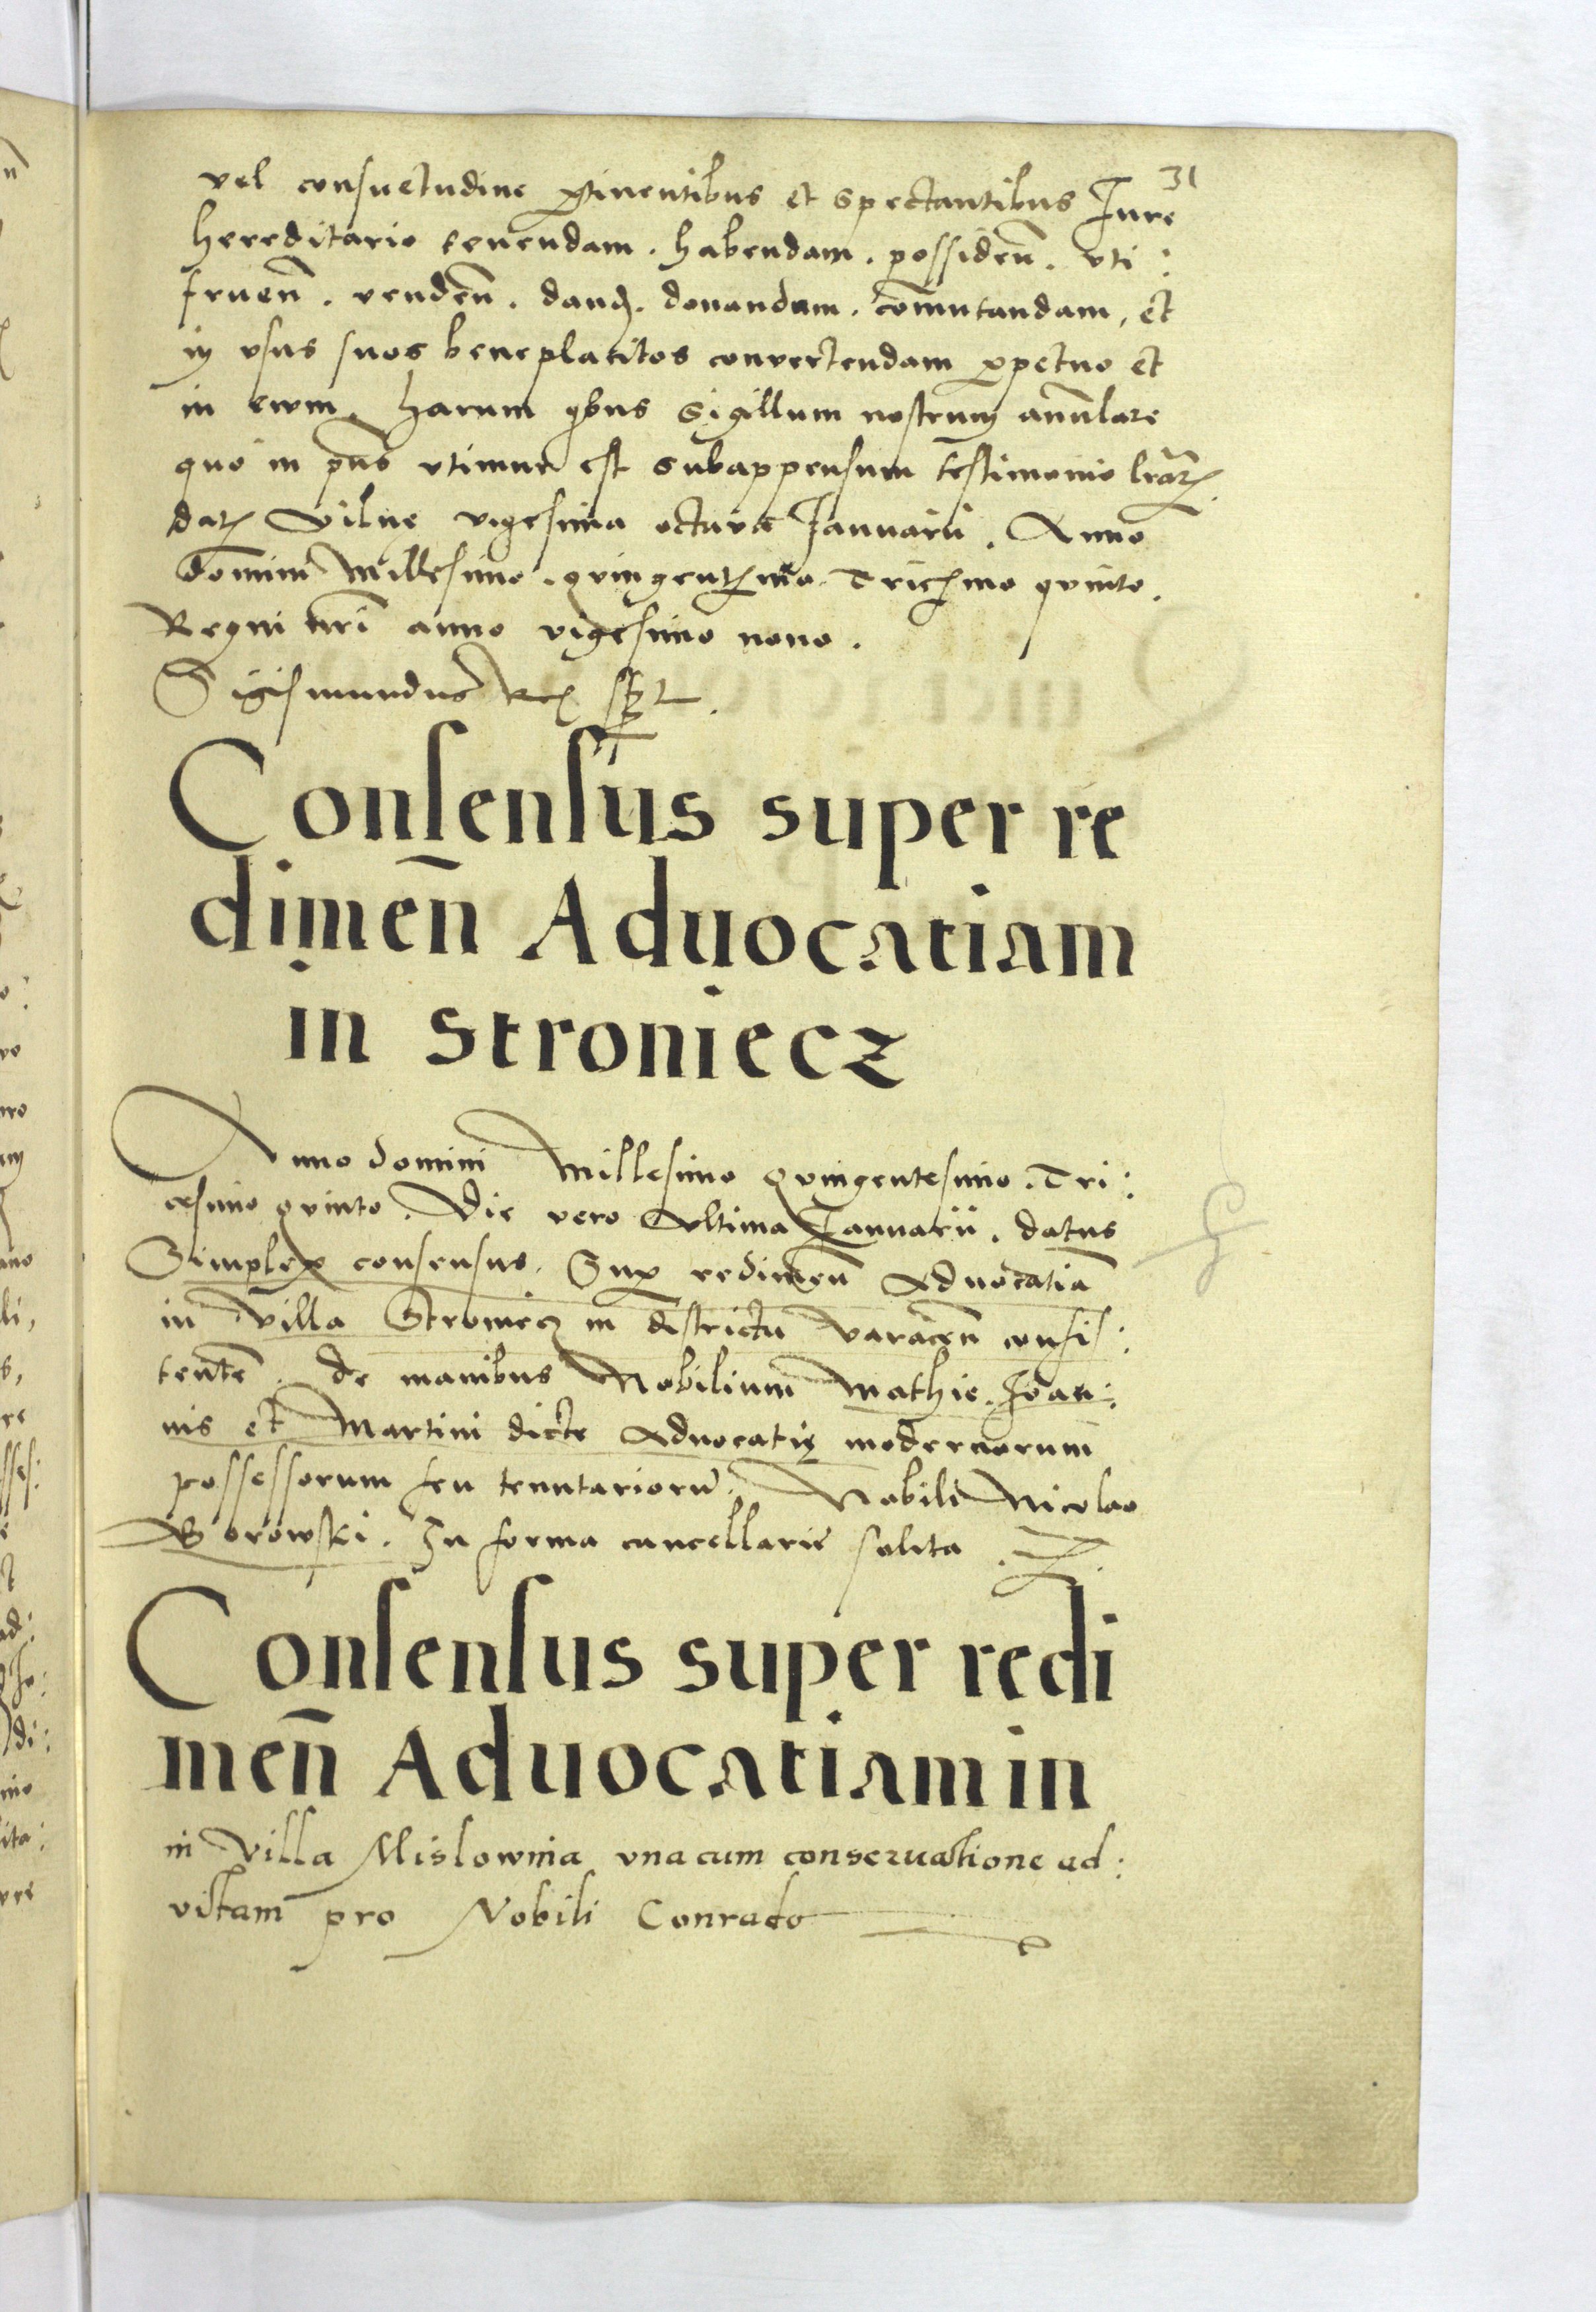 31
vel consuetudine ꝑtinentibus et spectantibus Iure
hereditario tenendam. habendam. possideñ. vti:
frueñ. vendeñ. dand. donandam. com̄utandam, et
in vsus suos beneplacitos convertendam ꝑpetuo et
in ewm. harum qbus Sigillum nostrum an̄ulare
quo in pn̄s vtimur est subappensum testimonio lr̄aꝝ
datꝝ Vilnę vigesima octava Ianuarii. Anno
domini Millesimo. quingentꝝmo Tricesimo quinto.
Regni nr̄i anno vigesimo nono.
Sigismundus Rex sst.
Consensus super re
dimeñ Aduocatiam
in Stroniecz
Anno domini Millesimo quingentesimo. Tri:
cesimo quinto. Die vero vltima Ianuarii. datus
Simplex consensus. Sup redimeñ Aduocatiā
in Villa Stromiecz in districtu Varaceñ consis:
tentē. de manibus Nobilium Mathie. Ioan:
nis et Martini dicte Aduocatię modernorum
possessorum seu tenutariorū. Nobili Nicolao
Borowski. In forma cancellarie solita.
Consensus super redi
meñ Aduocatiam in
in Villa Mislownia vna cum conseruatione ad:
vitam pro Nobili Conrado